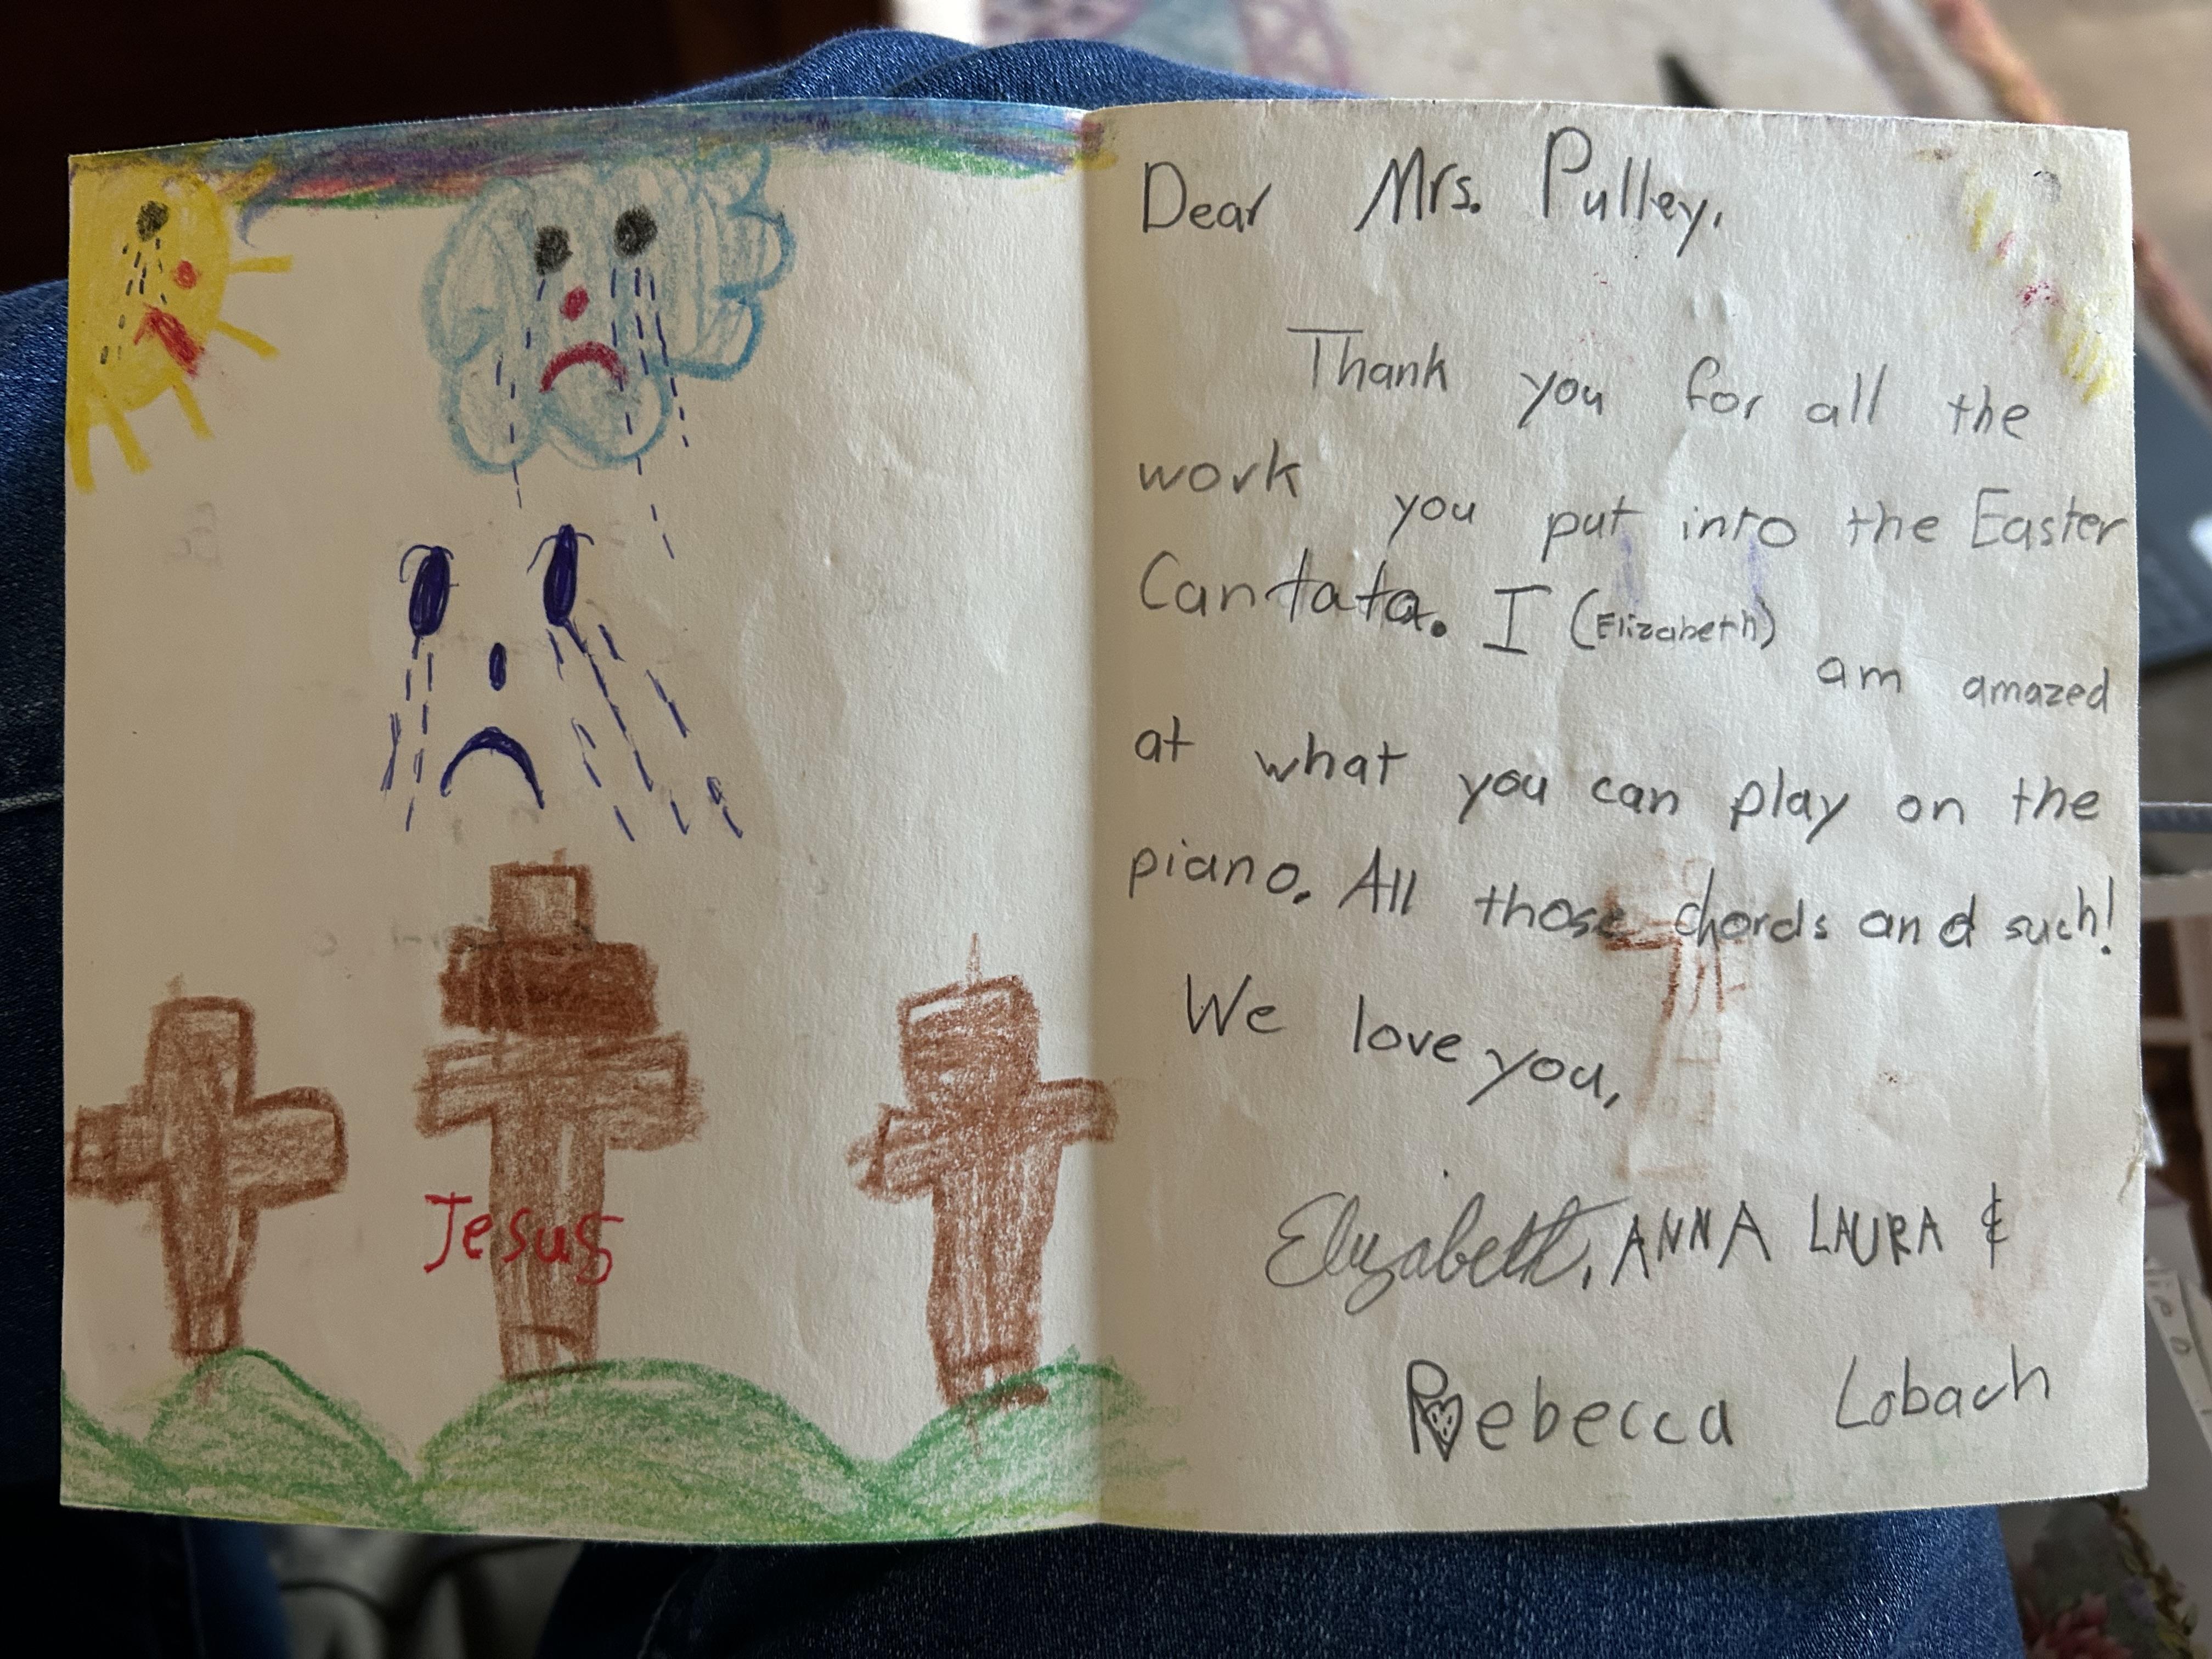 Jesus
Dear Mrs. Pulley,
Thank you for all the
work you put into the Easter
Cantata. I (Elizabeth) am amazed
at what you can play on the
piano. All those chords and such!
We love you,
Elizabeth, ANNA LAURA &
Rebecca Lobach